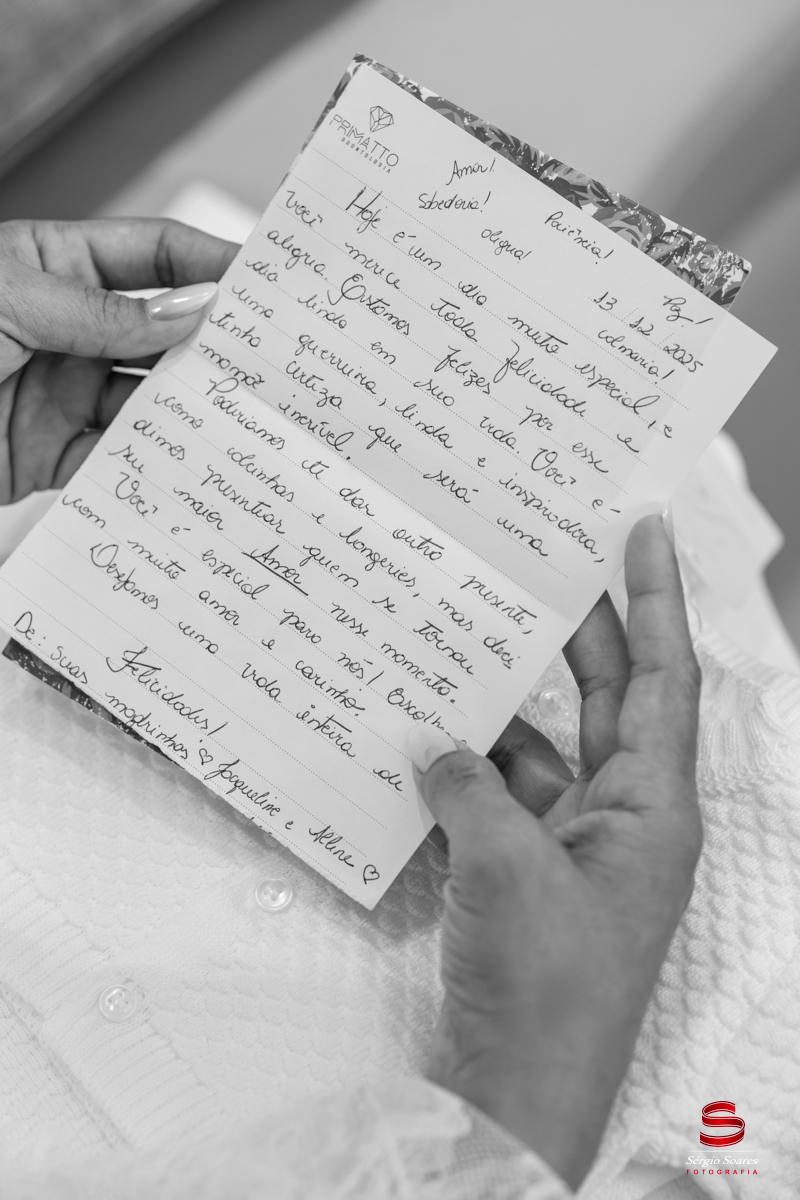 PRIMATTO
ODONTOLOGIA
Amor!
Sabedoria! Paciência! Paz!
Alegria! calmaria!
13/12/2025
Hoje é um dia muito especial, e
você merece toda felicidade e
alegria. Estamos felizes por esse
dia lindo em sua vida. Você é
uma guerreira, linda e inspiradora,
tenho certeza que será uma
mamãe incrível.
Poderíamos te dar outro presente,
como calcinhas e longeries, mas deci
dimos presentear quem se tornou
seu maior Amor nesse momento.
Você é especial para nós! Escolh
com muito amor e carinho.
Desejamos uma vida inteira de
Felicidades!
De: suas madrinhas ♡ Jaqueline e Aline ♡
S
Sérgio Soares
FOTOGRAFIA